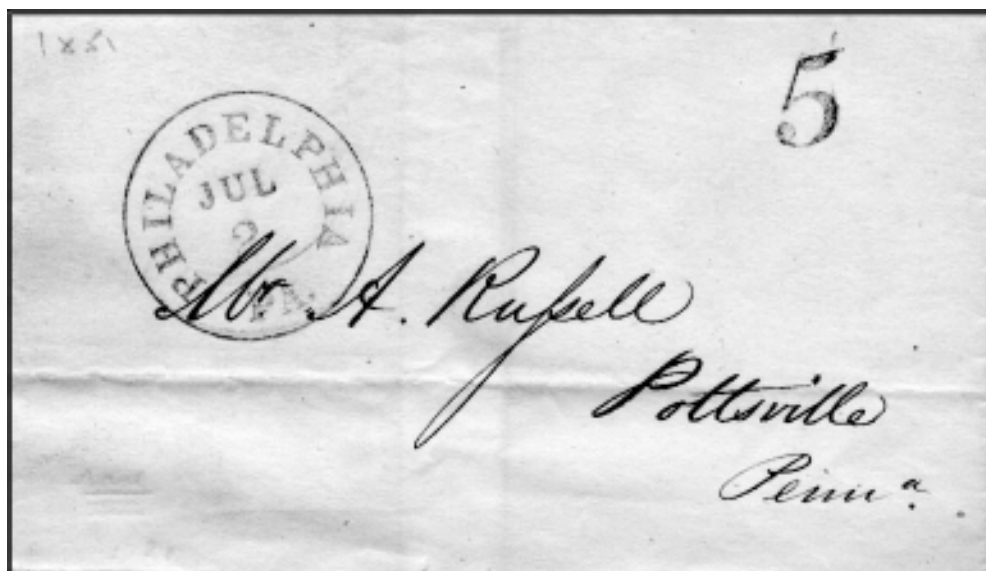 1851
5
PHILADELPHIA Pa.
JUL
2
Mr. A. Rußell
Pottsville
Penn a.